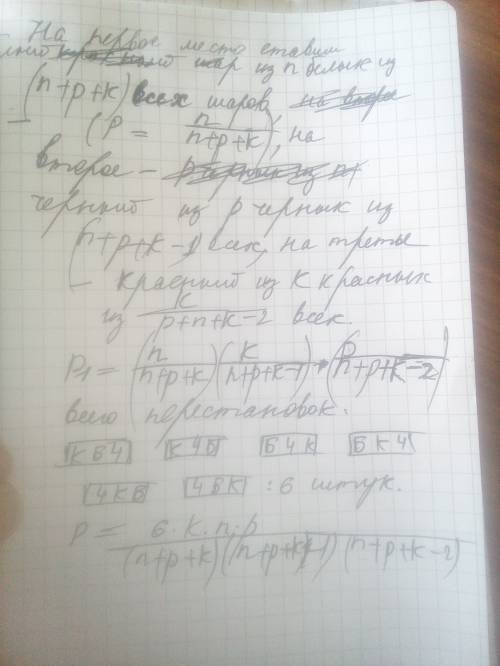 На первое место ставим
шар из n белых из
(n+p+k) всех шаров
(P = n/(n+p+k)), на
второе –
черный из p черных из
(n+p+k-1) всех, на третье
– красный из k красных
из k/(p+n+k-2) всех.
P₁ = (n/(n+p+k)) (k/(n+p+k-1)) · (p/(n+p+k-2))
всего перестановок.
КБЧ КЧБ БЧК БКЧ
ЧКБ ЧБК : 6 штук.
P = 6·k·n·p/((n+p+k)(n+p+k-1)(n+p+k-2))